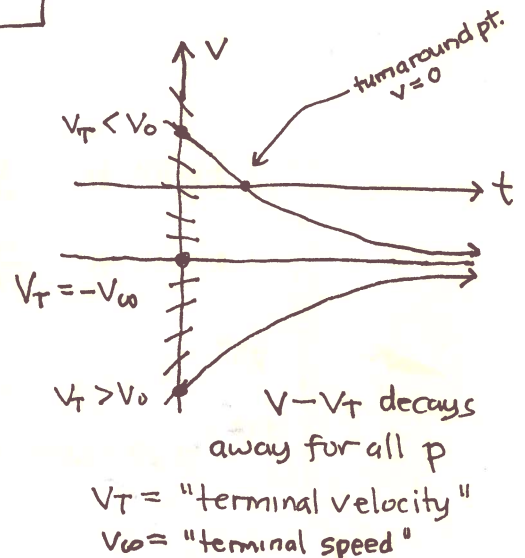 V
turnaround pt.
v=0
V_T < V_0
t
V_T = -V_∞
V_T > V_0
V-V_T decays
away for all p
V_T = "terminal velocity"
V_∞ = "terminal speed"